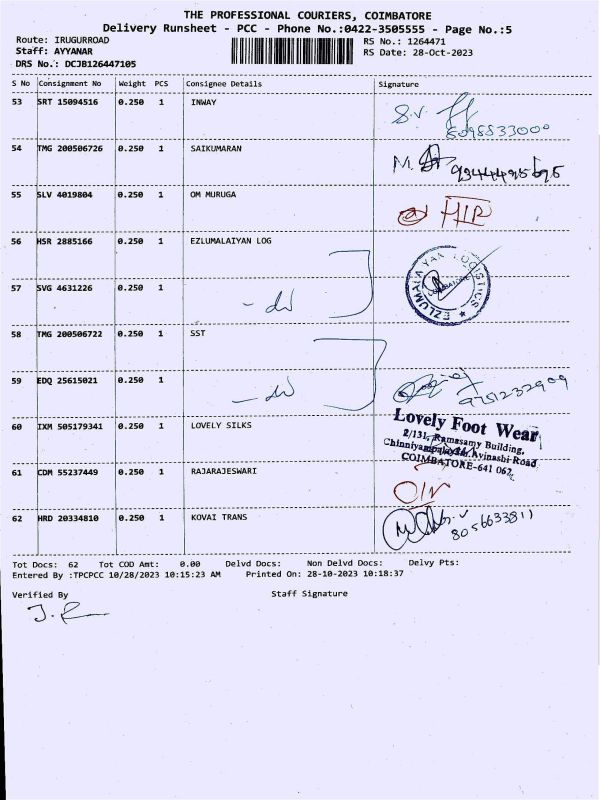 THE PROFESSIONAL COURIERS, COIMBATORE
Delivery Runsheet - PCC - Phone No.:0422-3505555 - Page No.:5
Route: IRUGURROAD
Staff: AYYANAR
DRS No.: DCJB126447105
RS No.: 1264471
RS Date: 28-Oct-2023
S No Consignment No Weight PCS Consignee Details Signature
53 SRT 15094516 0.250 1 INWAY
54 TMG 200506726 0.250 1 SAIKUMARAN
55 SLV 4019804 0.250 1 OM MURUGA
56 HSR 2885166 0.250 1 EZLUMALAIYAN LOG
57 SVG 4631226 0.250 1
58 TMG 200506722 0.250 1 SST
59 EDQ 25615021 0.250 1
9751232909
60 IXM 505179341 0.250 1 LOVELY SILKS
Lovely Foot Wear
2/131, Ramasamy Building,
Avinashi Road
COIMBATORE-641 062.
61 CDM 55237449 0.250 1 RAJARAJESWARI
62 HRD 20334810 0.250 1 KOVAI TRANS
8056633811
Tot Docs: 62 Tot COD Amt: 0.00 Delvd Docs: Non Delvd Docs: Delvy Pts:
Entered By :TPCPCC 10/28/2023 10:15:23 AM Printed On: 28-10-2023 10:18:37
Verified By Staff Signature